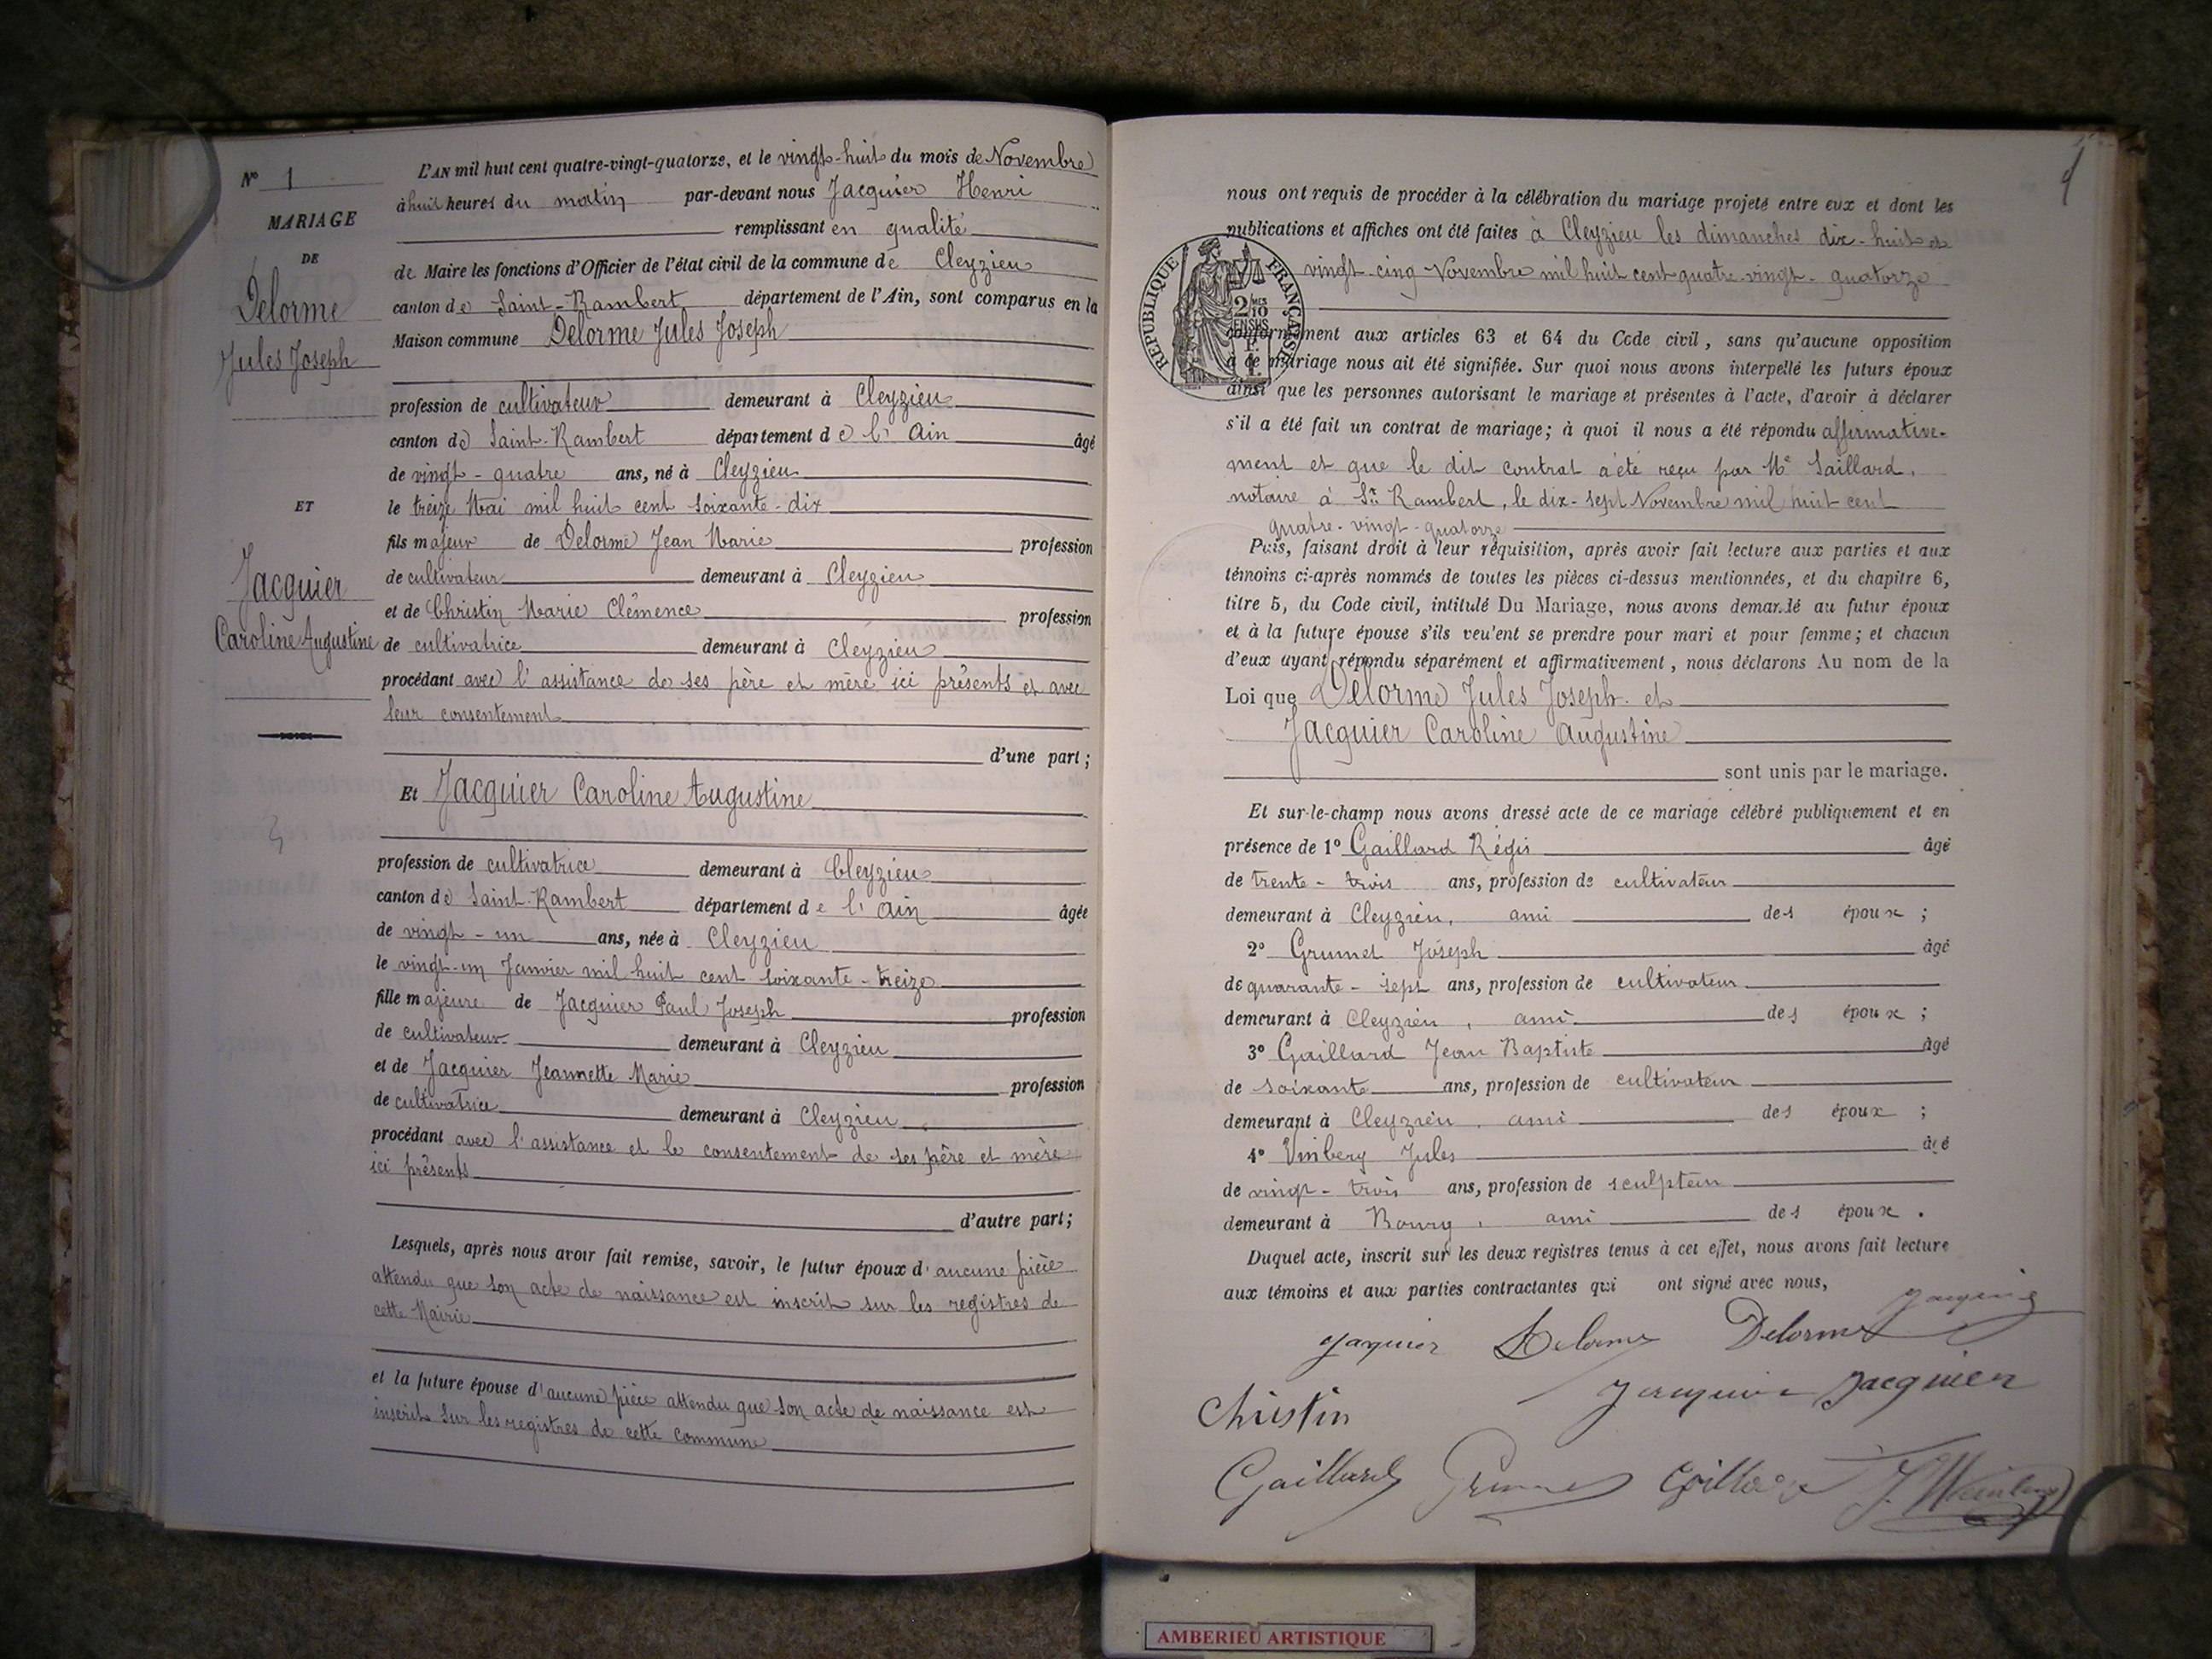 N° 1
MARIAGE
DE
Delorme
Jules Joseph
ET
Jacquier
Caroline Augustine
L'AN mil huit cent quatre-vingt-quatorze, et le vingt-huit du mois de Novembre
à huit heures du matin par-devant nous Jacquier Henri
remplissant en qualité
de Maire les fonctions d'Officier de l'état civil de la commune de Cleyzieu
canton de Saint-Rambert département de l'Ain, sont comparus en la
Maison commune Delorme Jules Joseph
profession de cultivateur demeurant à Cleyzieu
canton de Saint-Rambert département de l'Ain âgé
de vingt-quatre ans, né à Cleyzieu
le treize Mai mil huit cent soixante-dix
fils majeur de Delorme Jean Marie profession
de cultivateur demeurant à Cleyzieu
et de Christin Marie Clémence profession
de cultivatrice demeurant à Cleyzieu
procédant avec l'assistance de ses père et mère ici présents et avec
leur consentement
d'une part;
Et Jacquier Caroline Augustine
profession de cultivatrice demeurant à Cleyzieu
canton de Saint-Rambert département de l'Ain âgée
de vingt-un ans, née à Cleyzieu
le vingt-un Janvier mil huit cent soixante-treize
fille majeure de Jacquier Paul Joseph profession
de cultivateur demeurant à Cleyzieu
et de Jacquier Jeannette Marie profession
de cultivatrice demeurant à Cleyzieu
procédant avec l'assistance et le consentement de ses père et mère
ici présents
d'autre part;
Lesquels, après nous avoir fait remise, savoir, le futur époux d'aucune pièce
attendu que son acte de naissance est inscrit sur les registres de
cette Mairie
et la future épouse d'aucune pièce attendu que son acte de naissance est
inscrit sur les registres de cette commune
nous ont requis de procéder à la célébration du mariage projeté entre eux et dont les
publications et affiches ont été faites à Cleyzieu les dimanches dix-huit et
vingt-cinq Novembre mil huit cent quatre-vingt-quatorze
RÉPUBLIQUE FRANÇAISE
2/10
EN SUS
conformément aux articles 63 et 64 du Code civil, sans qu'aucune opposition
à ce mariage nous ait été signifiée. Sur quoi nous avons interpellé les futurs époux
ainsi que les personnes autorisant le mariage et présentes à l'acte, d'avoir à déclarer
s'il a été fait un contrat de mariage; à quoi il nous a été répondu affirmative-
ment et que le dit contrat a été reçu par Me Saillard,
notaire à St Rambert, le dix-sept Novembre mil huit cent
quatre-vingt-quatorze
Puis, faisant droit à leur réquisition, après avoir fait lecture aux parties et aux
témoins ci-après nommés de toutes les pièces ci-dessus mentionnées, et du chapitre 6,
titre 5, du Code civil, intitulé Du Mariage, nous avons demandé au futur époux
et à la future épouse s'ils veulent se prendre pour mari et pour femme; et chacun
d'eux ayant répondu séparément et affirmativement, nous déclarons Au nom de la
Loi que Delorme Jules Joseph et
Jacquier Caroline Augustine
sont unis par le mariage.
Et sur-le-champ nous avons dressé acte de ce mariage célébré publiquement et en
présence de 1° Gaillard Régis âgé
de trente-trois ans, profession de cultivateur
demeurant à Cleyzieu, ami des époux;
2° Grumet Joseph âgé
de quarante-sept ans, profession de cultivateur
demeurant à Cleyzieu, ami des époux;
3° Gaillard Jean Baptiste âgé
de soixante ans, profession de cultivateur
demeurant à Cleyzieu, ami des époux;
4° Jules âgé
de vingt-trois ans, profession de sculpteur
demeurant à ami des époux.
Duquel acte, inscrit sur les deux registres tenus à cet effet, nous avons fait lecture
aux témoins et aux parties contractantes qui ont signé avec nous,
Jacquier
Jaquier Delorme Delorme
Christin Jacquier Jacquier
Gaillard Grumet Gaillard
AMBERIEU ARTISTIQUE